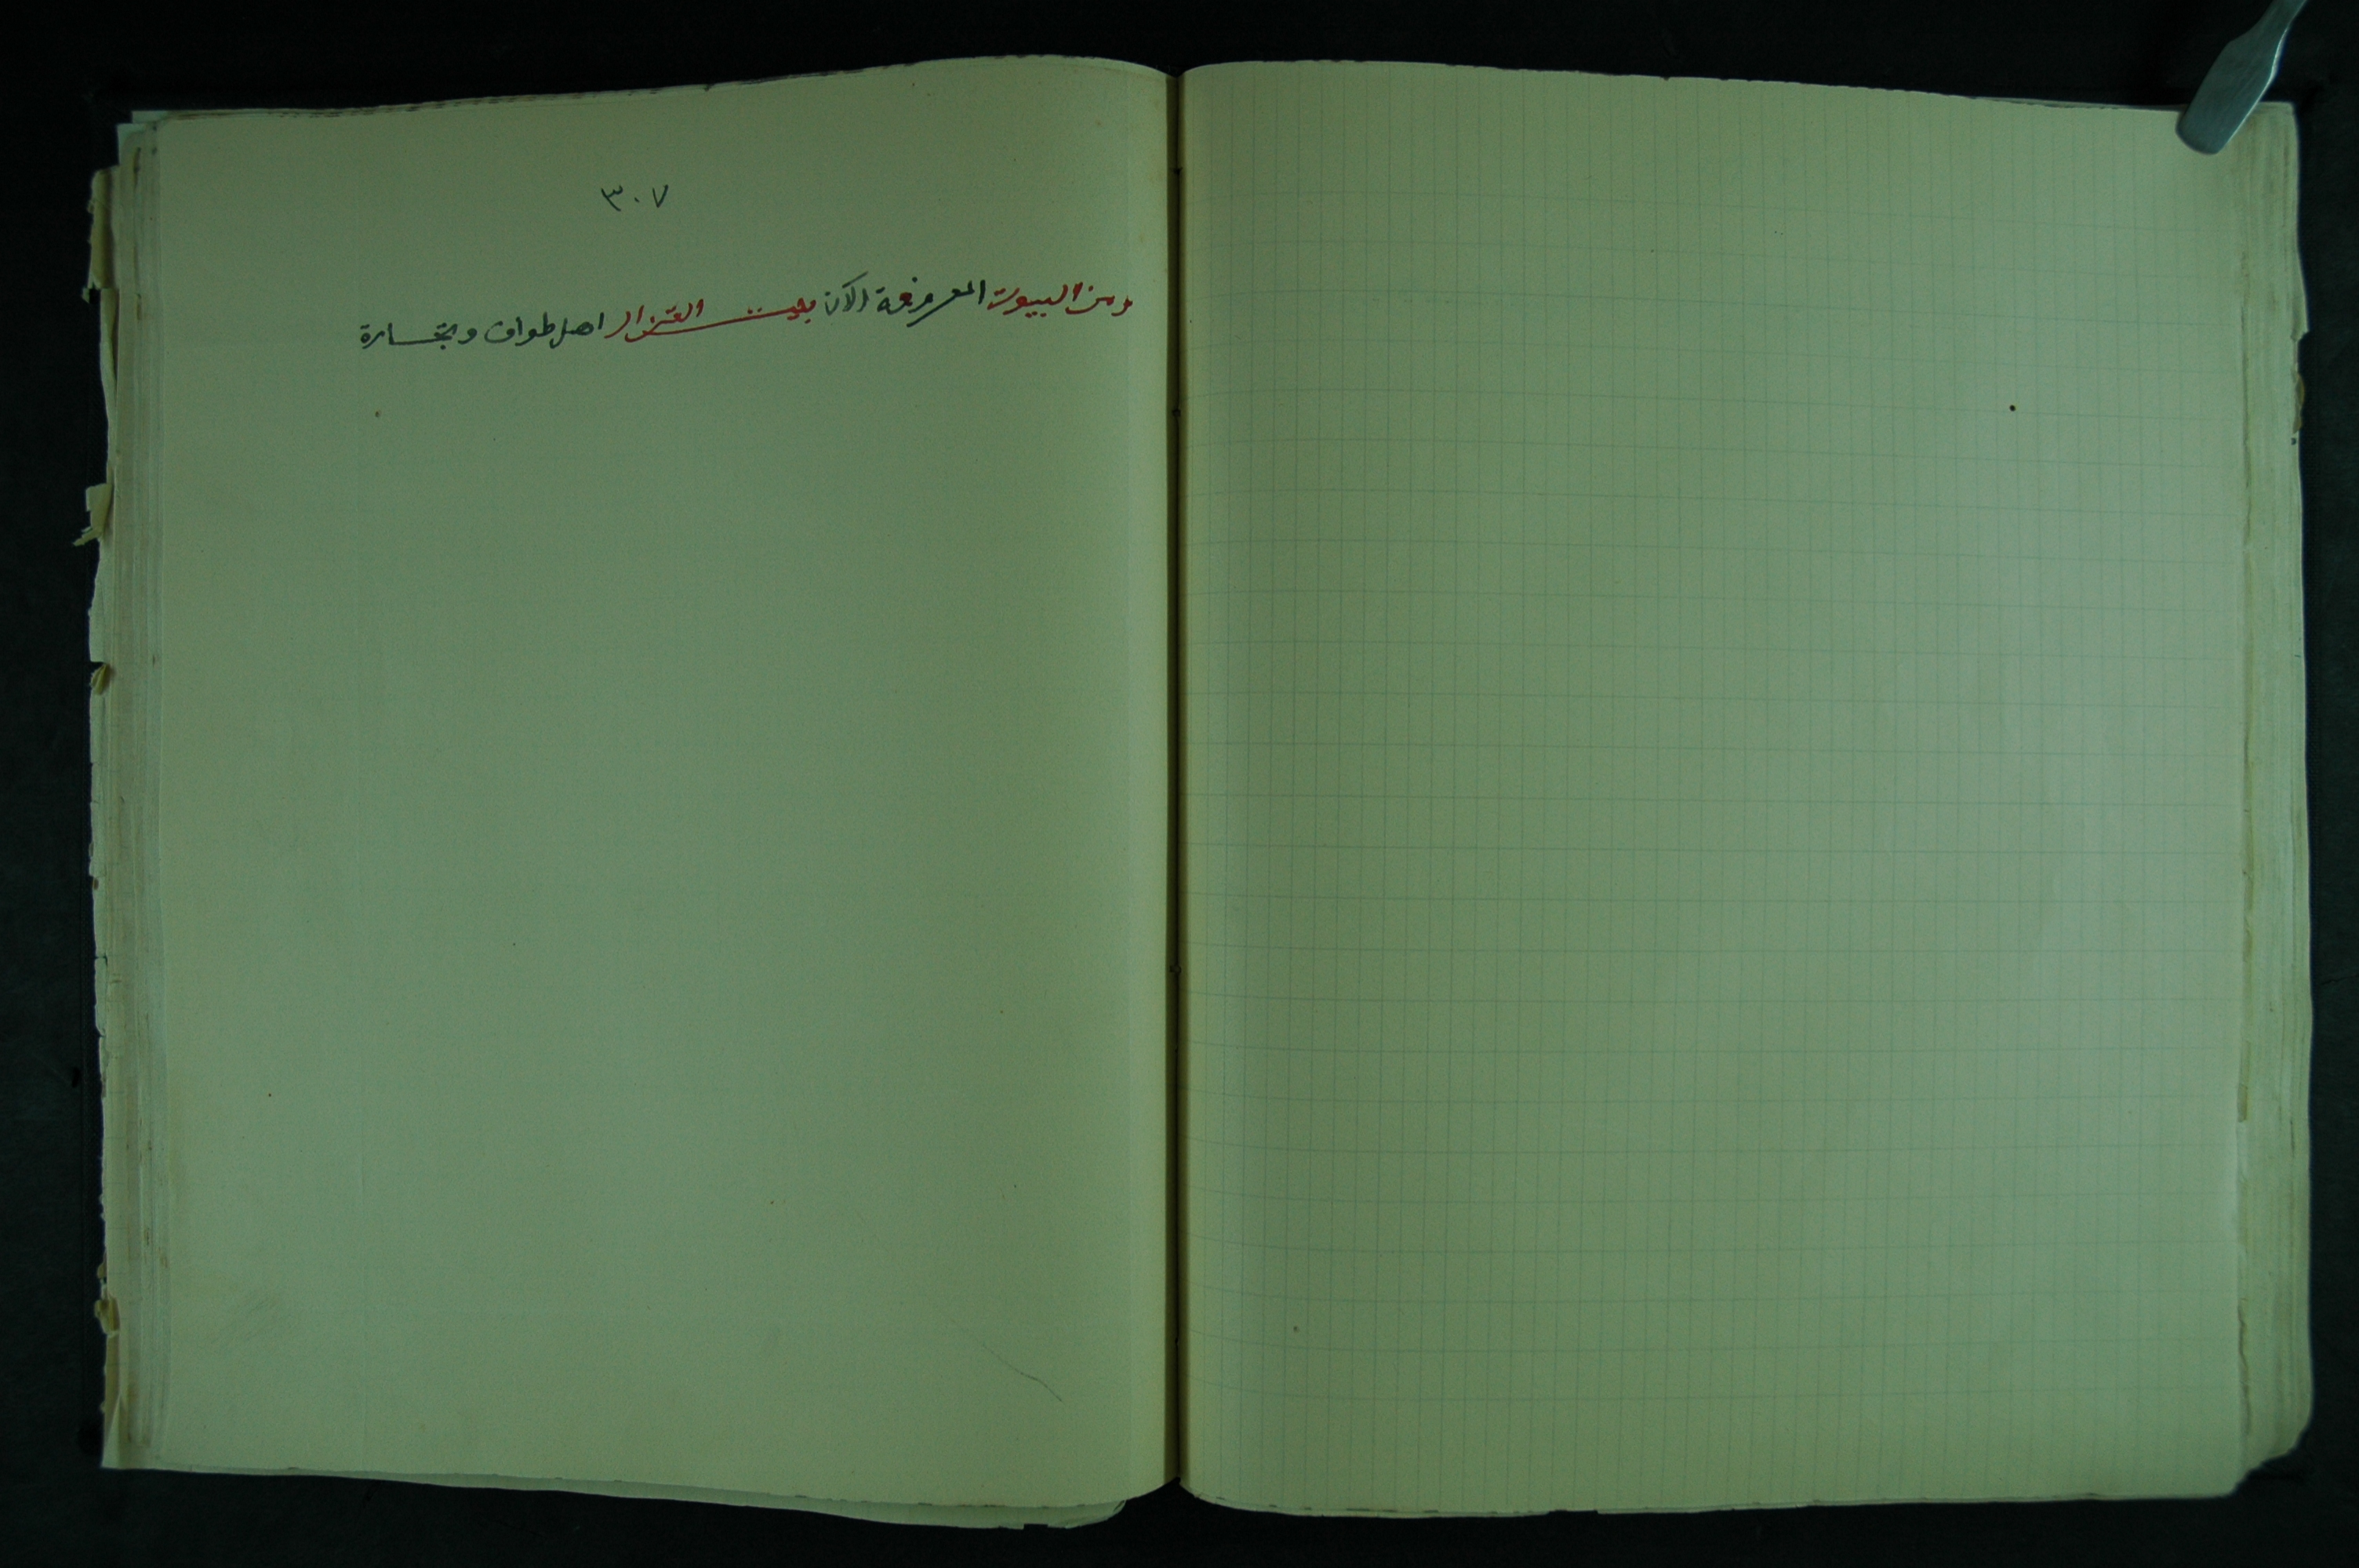 ٣٠٧
ومن البيوت المعروفة الآن بيت القزاز اهل طواف وتجارة